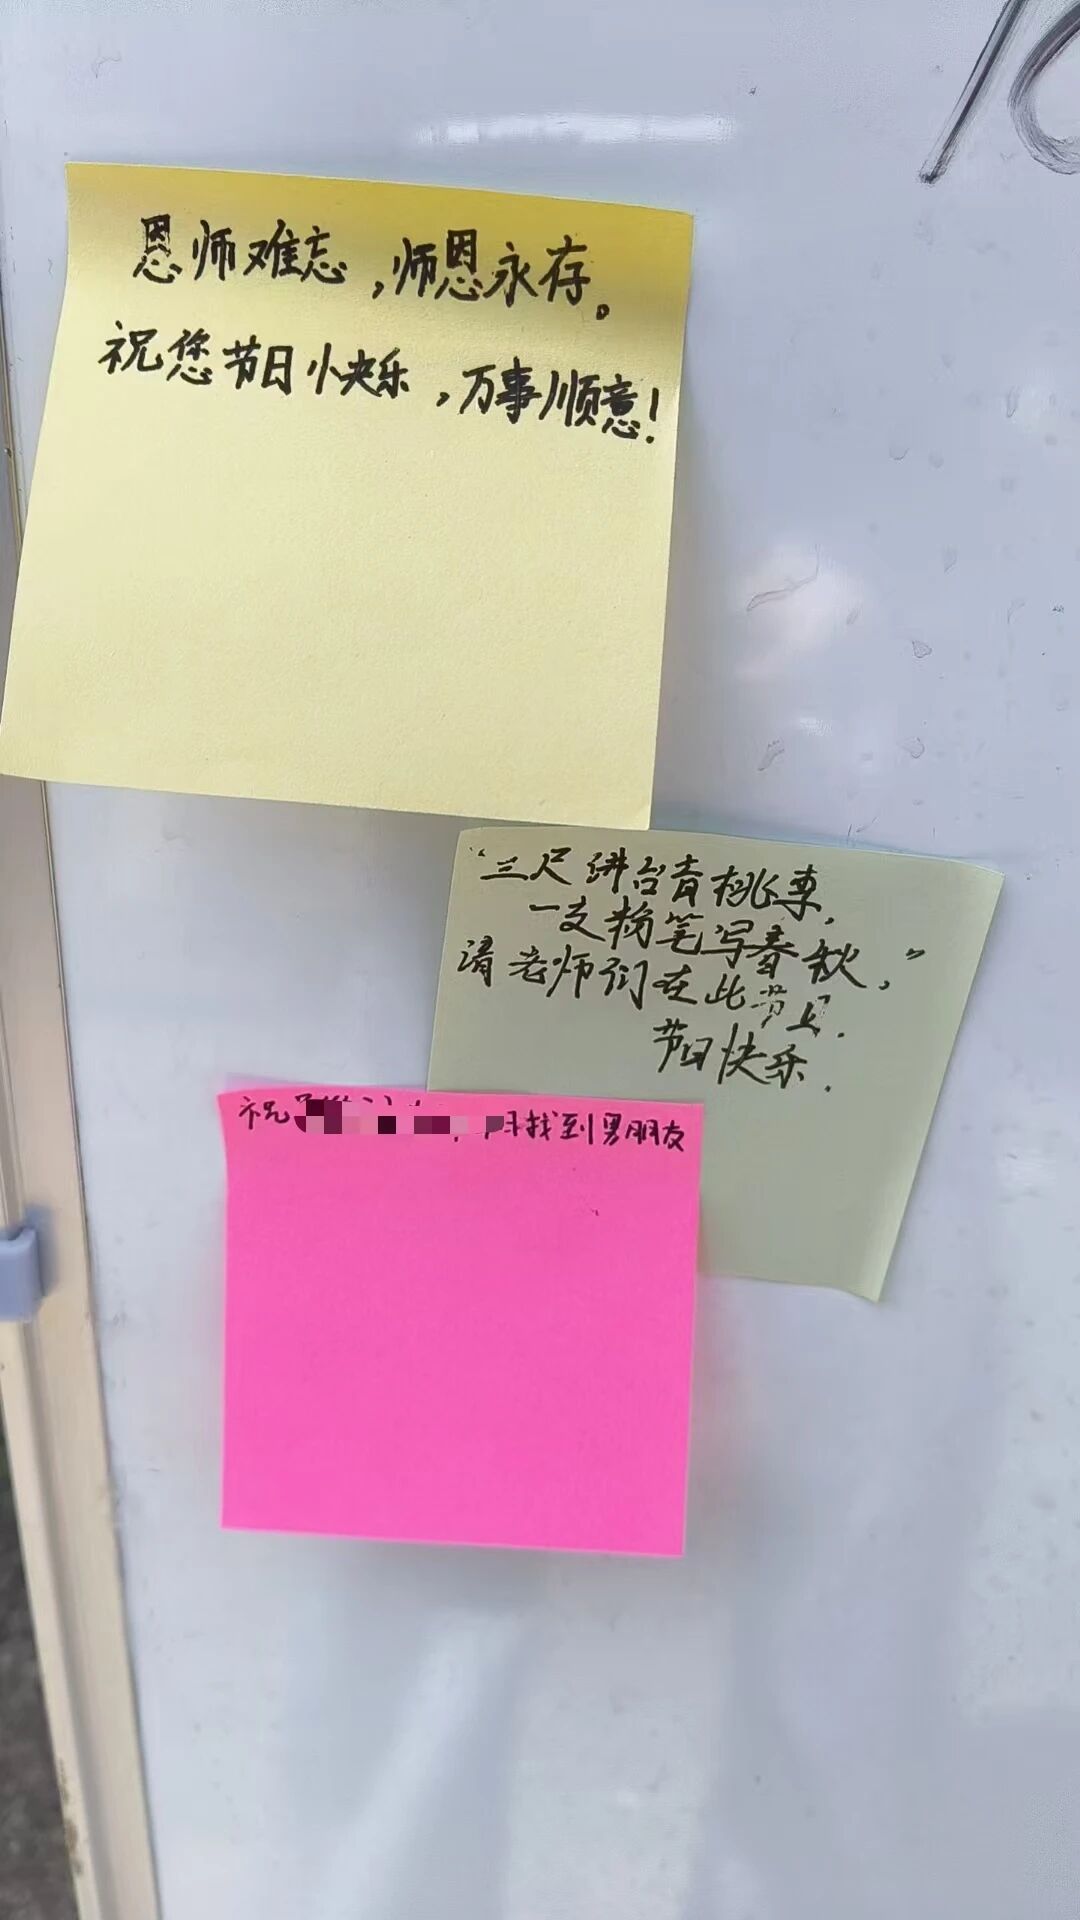 恩师难忘,师恩永存。
祝您节日快乐,万事顺意!
"三尺讲台育桃李,
一支粉笔写春秋,"
请老师们在此节日.
节日快乐.
祝
找到男朋友